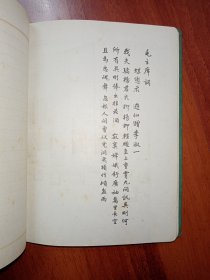 毛主席词
蝶恋花 游仙赠李淑一
我失骄杨君失柳杨柳轻飏直上重霄九问讯吴刚何
所有吴刚捧出桂花酒 寂寞嫦娥舒广袖万里长空
且为忠魂舞忽报人间曾伏虎泪飞顿作倾盆雨